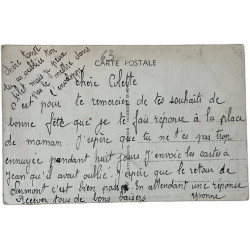 63
CARTE POSTALE
chère
tu as oublié ton
filet mais je peux
pas le mettre dans
l'enveloppe
chère Colette
C'est pour te remercier de tes souhaits de
bonne fête que je te fais réponse à la place
de maman. J'espère que tu ne t'es pas trop
ennuyée pendant huit jours J'envoie les cartes à
Jean qu'il avait oublié. J'espère que le retour de
c'est bien passé. En attendant une réponse
Recever tous de bons baisers Yvonne